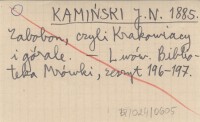 KAMIŃSKI J. N. 1885.
Zabobon, czyli Krakowiacy
i górale. – Lwów. Biblio-
teka Mrówki, zeszyt 196-197.